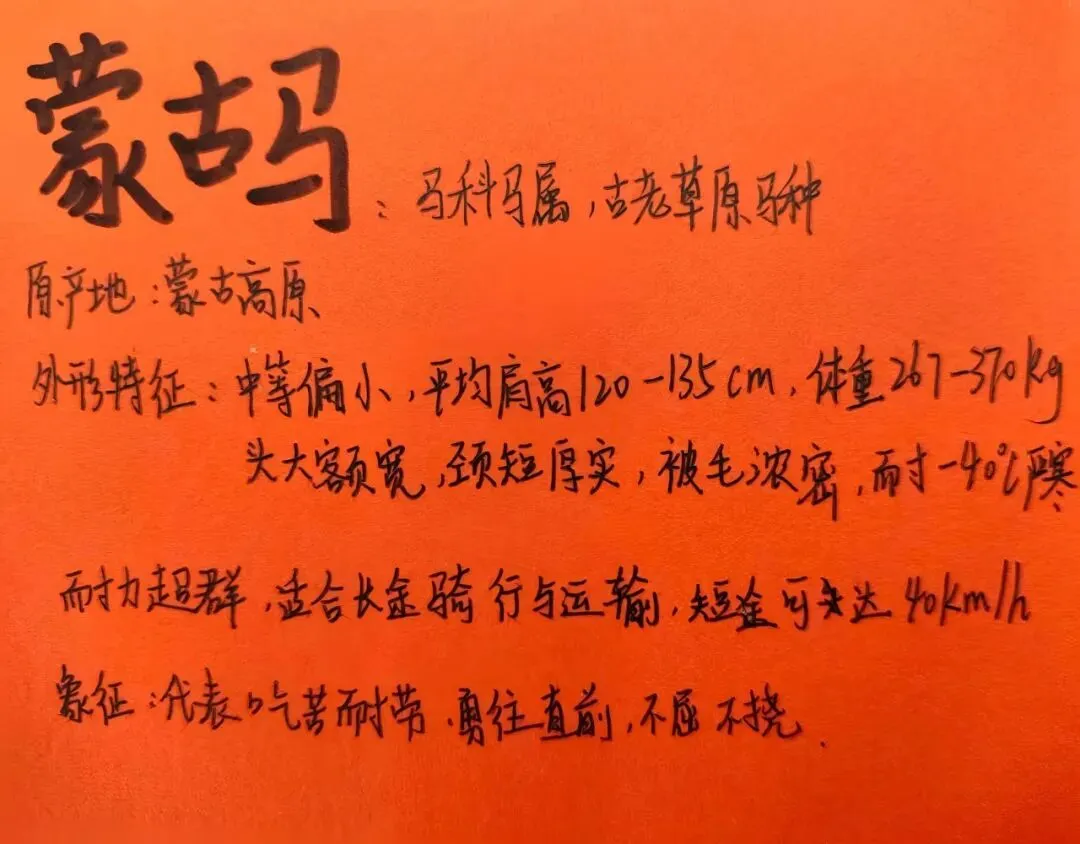 蒙古马：马科马属，古老草原马种
原产地：蒙古高原
外形特征：中等偏小，平均肩高120-135cm，体重267-370kg
头大额宽，颈短厚实，被毛浓密，耐-40℃严寒
耐力超群，适合长途骑行与运输，短途可达40km/h
象征：代表吃苦耐劳，勇往直前，不屈不挠．